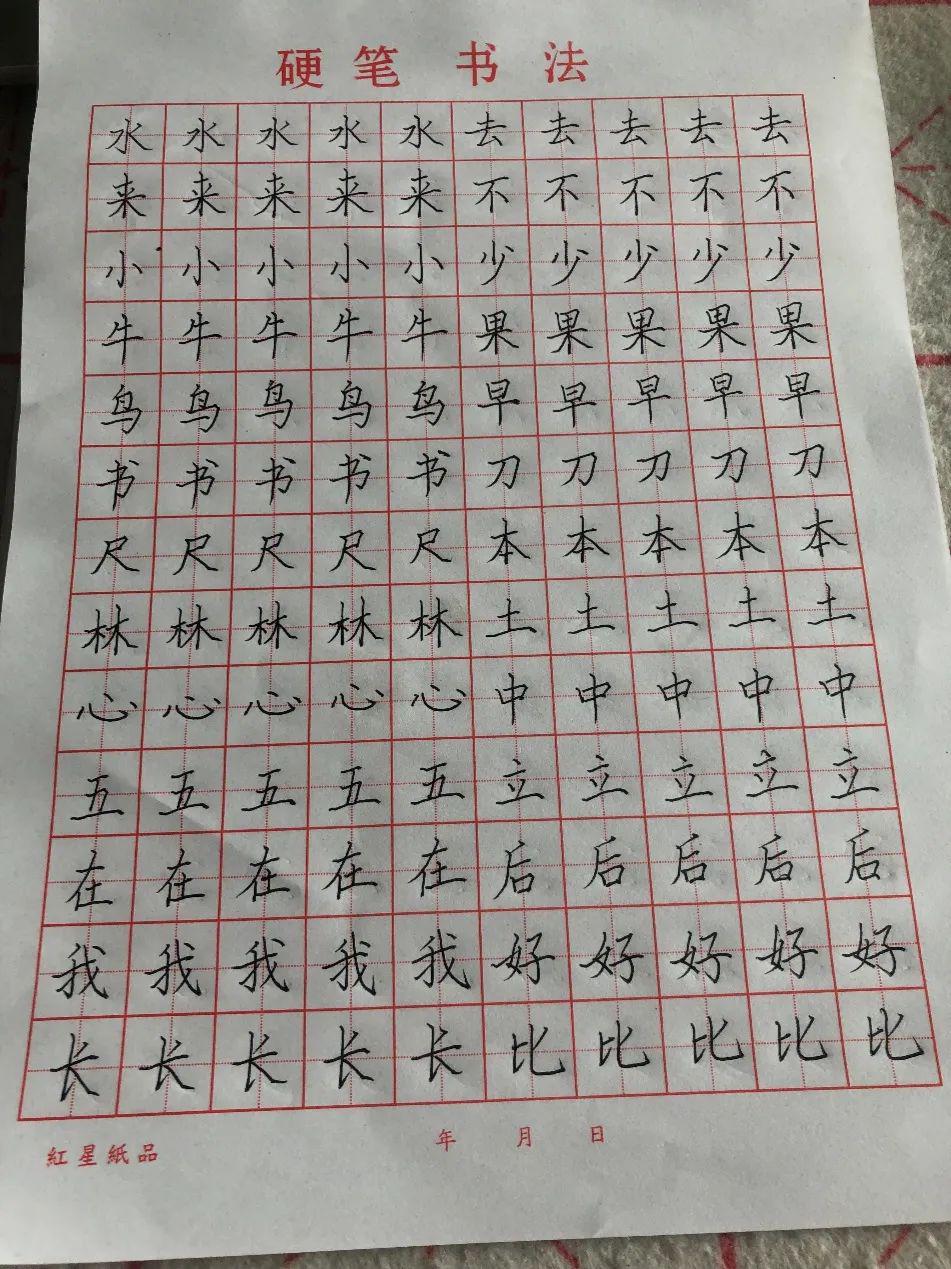 硬笔 书法
水水水水水去去去去去
来来来来来不不不不不
小小小小小少少少少少
牛牛牛牛牛果果果果果
鸟鸟鸟鸟鸟早早早早早
书书书书书刀刀刀刀刀
尺尺尺尺尺本本本本本
林林林林林土土土土土
心心心心心中中中中中
五五五五五立立立立立
在在在在在后后后后后
我我我我我好好好好好
长长长长长比比比比比
紅星紙品 年 月 日